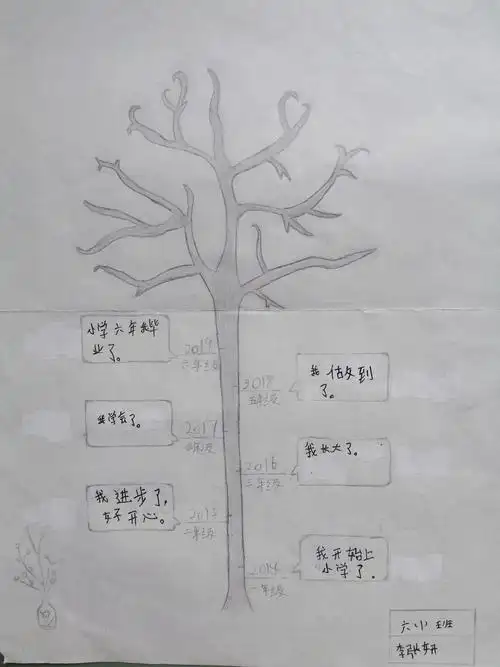 小学六年我毕
业了。
2019
六年级
我做到
了。
2018
五年级
我学会了。
2017
四年级
我长大了。
2016
三年级
我进步了，
好开心。
2015
二年级
我开始上
小学了。
2014
一年级
六小 班